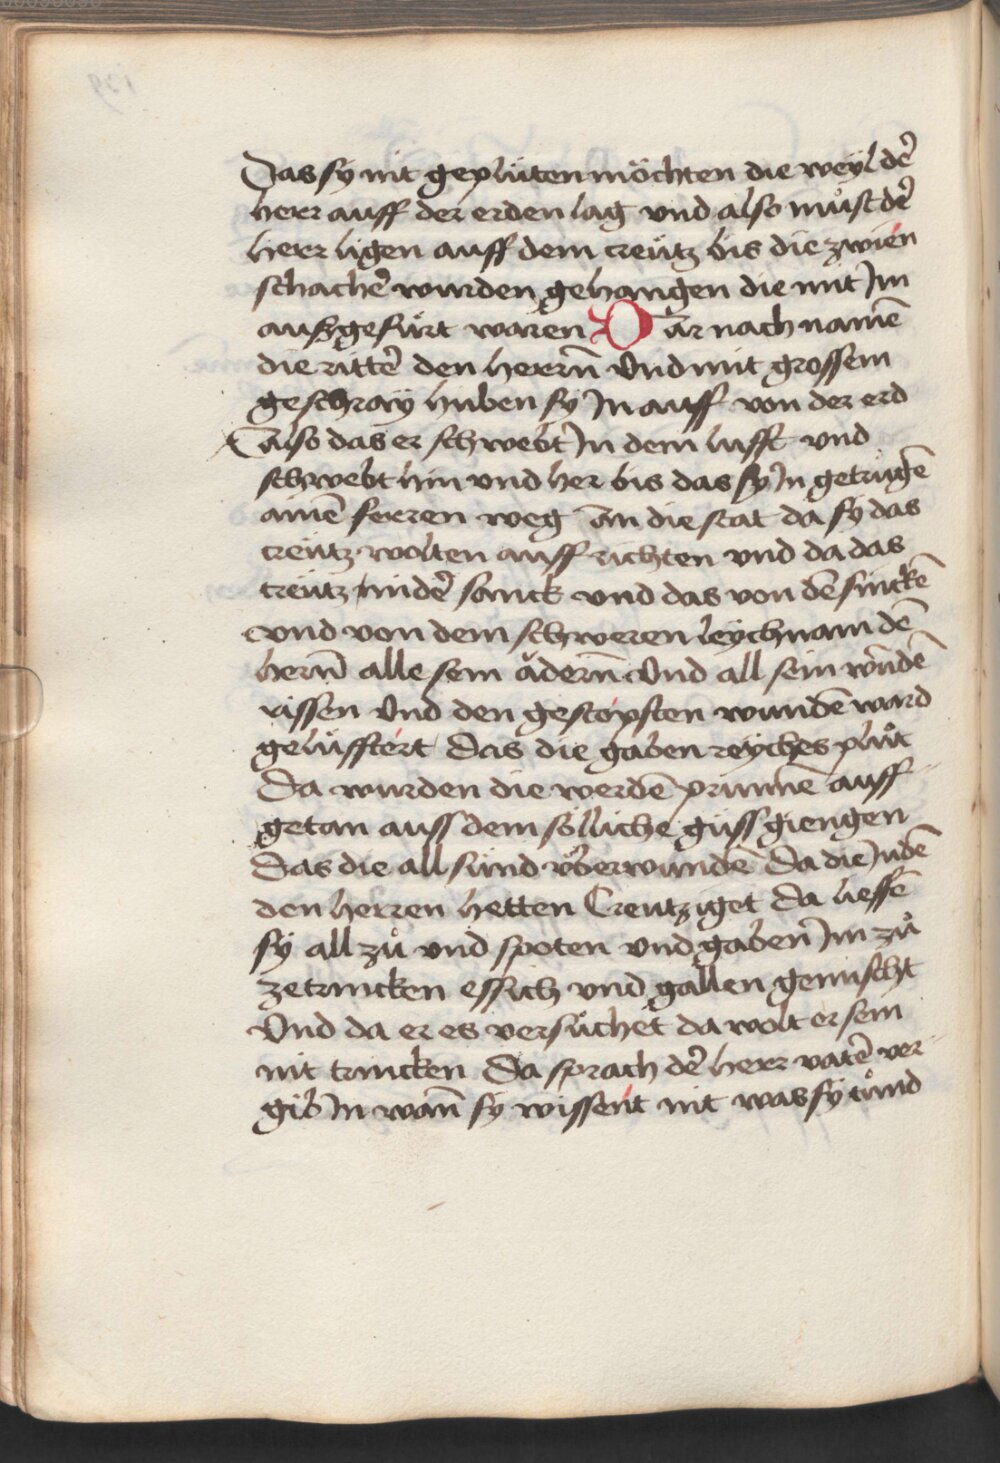 Das sy nit geplüten möchten die weyl dē
herr auff der erden lag vnd also můst dē
herr ligen auff dem creütz bis die zwien
schachē wurden gehangen die mit Im
außgefürt waren Dar nach namē
die rittē den herrn̄ Vnd mit grossem
geschray huben sy In auff von der erd
Also das er schwebt In dem lufft vnd
schwebt hin vnd her bis das sy In getrugē
ainē ferren weg an die stat da sy das
creütz wolten auff richten vnd da das
creütz nider sanck vnd das von dē sinckē
vnd von dem schweren leychnam dē
hern̄ alle sein ädern̄ Vnd all sein wundē
rissen Vnd den gestopften wundē ward
gelüfftert Das die gaben reyches plůt
Da wurden die werdē prunnē auff
getan auss dem sölliche güss giengen
Das die all sünd v̈berwundē Da die Judē
den herren hetten Creutziget Da lieffē
sy all zů vnd spoten vnd gaben Im zů
ze trincken essich vnd gallen gemischt
Vnd da er es versůchet da wolt er sein
nit trincken Da sprach dē herr vatē ver
gib In wan̄ sy wissent nit was sy tůnd